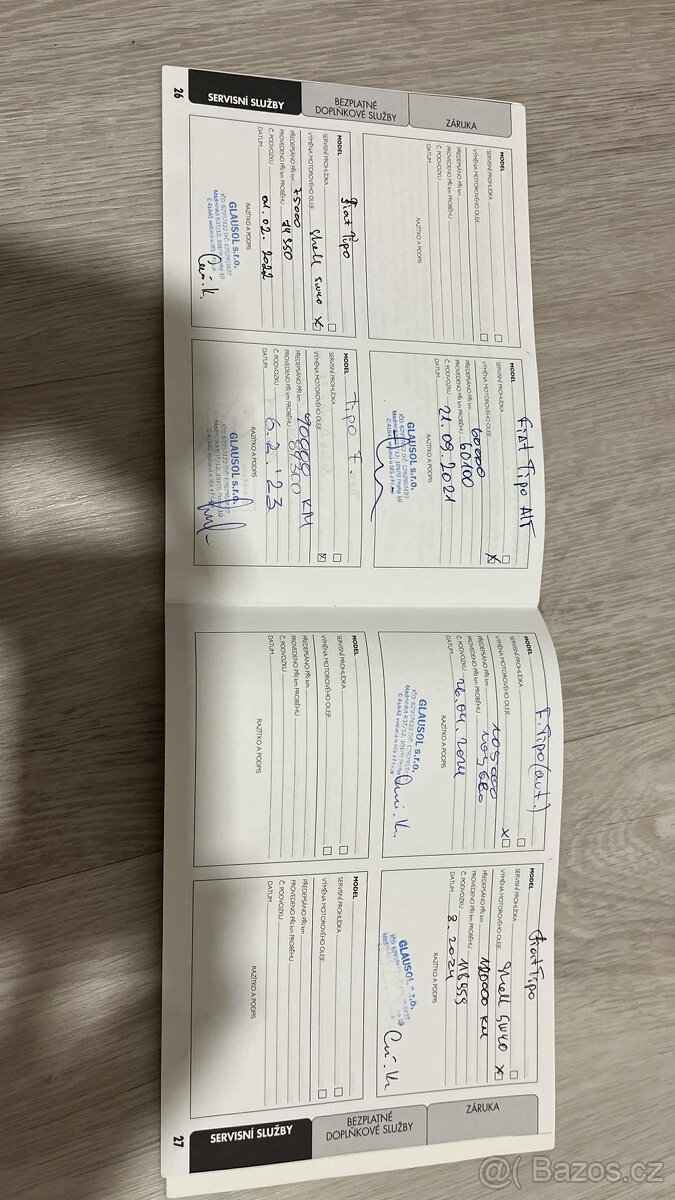 SERVISNÍ SLUŽBY
BEZPLATNÉ
DOPLŇKOVÉ SLUŽBY
ZÁRUKA
26
MODEL
SERVISNÍ PROHLÍDKA
VÝMĚNA MOTOROVÉHO OLEJE
PŘEDEPSÁNO PŘI km
PROVEDENO PŘI km PROBĚHU
Č. PODVOZKU
DATUM
RAZÍTKO A PODPIS
MODEL Fiat Tipo
SERVISNÍ PROHLÍDKA
VÝMĚNA MOTOROVÉHO OLEJE 
PŘEDEPSÁNO PŘI km 60000
PROVEDENO PŘI km PROBĚHU 60100
Č. PODVOZKU
DATUM 21.09.2021
RAZÍTKO A PODPIS
GLAUSOL s.r.o.
MODEL Fiat Tipo
SERVISNÍ PROHLÍDKA
VÝMĚNA MOTOROVÉHO OLEJE Shell 5W40 X
PŘEDEPSÁNO PŘI km 75000
PROVEDENO PŘI km PROBĚHU 74350
Č. PODVOZKU
DATUM 01.02.2022
RAZÍTKO A PODPIS
GLAUSOL s.r.o.
MODEL Tipo
SERVISNÍ PROHLÍDKA
VÝMĚNA MOTOROVÉHO OLEJE X
PŘEDEPSÁNO PŘI km KM
PROVEDENO PŘI km PROBĚHU
Č. PODVOZKU
DATUM 6.2.'23
RAZÍTKO A PODPIS
GLAUSOL s.r.o.
MODEL F. Tipo (aut.)
SERVISNÍ PROHLÍDKA
VÝMĚNA MOTOROVÉHO OLEJE X
PŘEDEPSÁNO PŘI km 105000
PROVEDENO PŘI km PROBĚHU
Č. PODVOZKU
DATUM
RAZÍTKO A PODPIS
GLAUSOL s.r.o.
MODEL Fiat Tipo
SERVISNÍ PROHLÍDKA
VÝMĚNA MOTOROVÉHO OLEJE Shell 5W40 X
PŘEDEPSÁNO PŘI km 120000 KM
PROVEDENO PŘI km PROBĚHU 118959
Č. PODVOZKU
DATUM 8.2024
RAZÍTKO A PODPIS
GLAUSOL s.r.o.
MODEL
SERVISNÍ PROHLÍDKA
VÝMĚNA MOTOROVÉHO OLEJE
PŘEDEPSÁNO PŘI km
PROVEDENO PŘI km PROBĚHU
Č. PODVOZKU
DATUM
RAZÍTKO A PODPIS
MODEL
SERVISNÍ PROHLÍDKA
VÝMĚNA MOTOROVÉHO OLEJE
PŘEDEPSÁNO PŘI km
PROVEDENO PŘI km PROBĚHU
Č. PODVOZKU
DATUM
RAZÍTKO A PODPIS
SERVISNÍ SLUŽBY
BEZPLATNÉ
DOPLŇKOVÉ SLUŽBY
ZÁRUKA
27
Bazos.cz